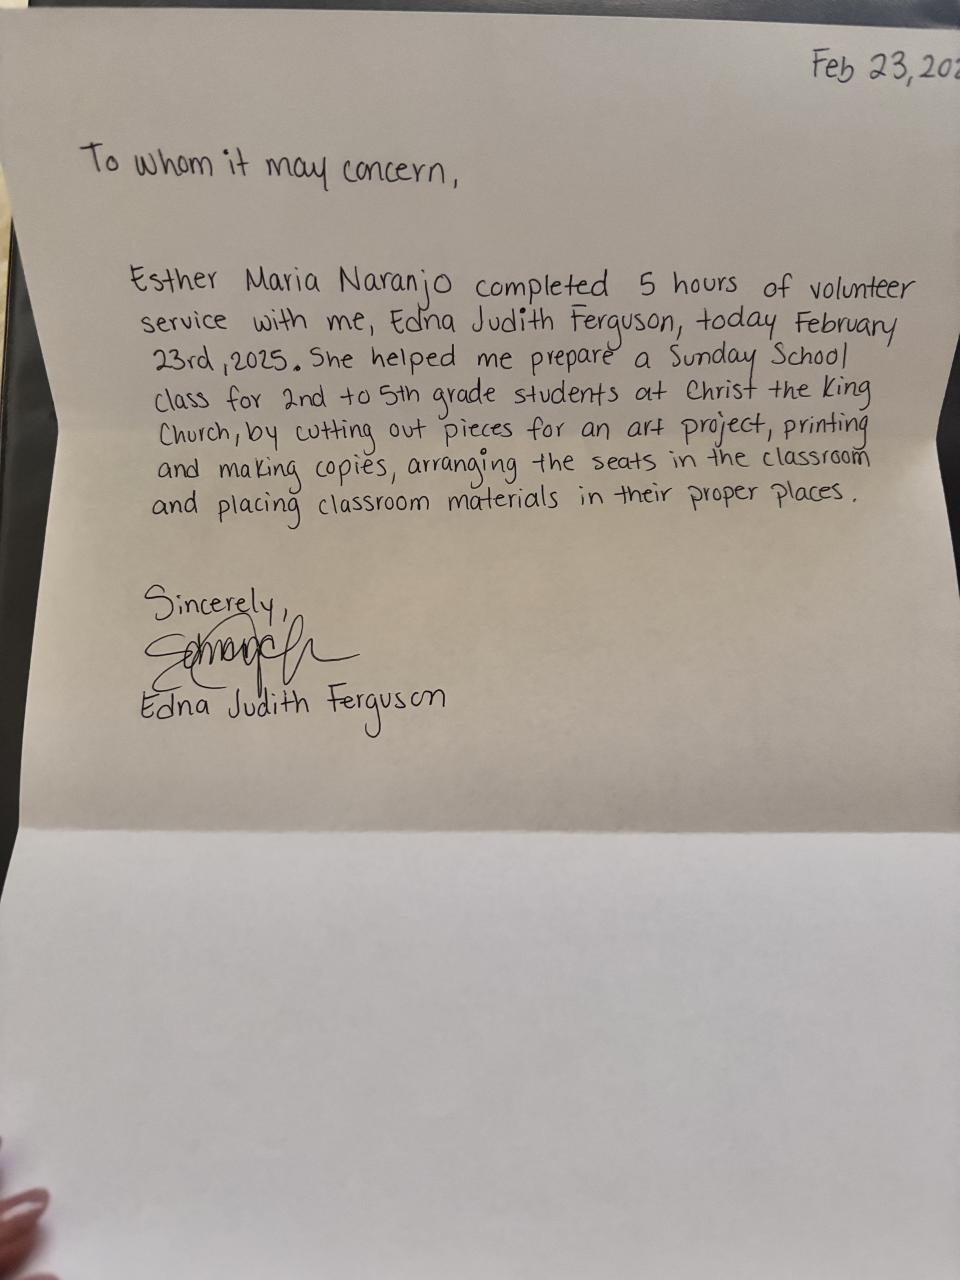 Feb 23, 202
To whom it may concern,
Esther Maria Naranjo completed 5 hours of volunteer
service with me, Edna Judith Ferguson, today February
23rd, 2025. She helped me prepare a Sunday School
class for 2nd to 5th grade students at Christ the King
Church, by cutting out pieces for an art project, printing
and making copies, arranging the seats in the classroom
and placing classroom materials in their proper places.
Sincerely,
Edna Judith Ferguson